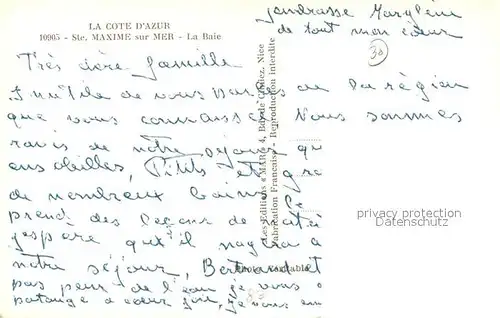 LA COTE D'AZUR
10905 - Ste. MAXIME sur MER - La Baie
j'embrasse Marylène
de tout mon cœur
30
Très chère famille
Inutile de vous parler de la région
que vous connaissez. Nous sommes
ravis de notre séjour qu
ensoleillés, Petits et gr
de nombreux bains
prend des leçons de
j'espère qu'il nagera a
notre séjour, Bertrand et
pas peur de l'eau je vous
patauge à cœur joie, je vous em
Les Editions « MAR » 4, Nice
Fabrication Française - Reproduction interdite
privacy protection
Datenschutz